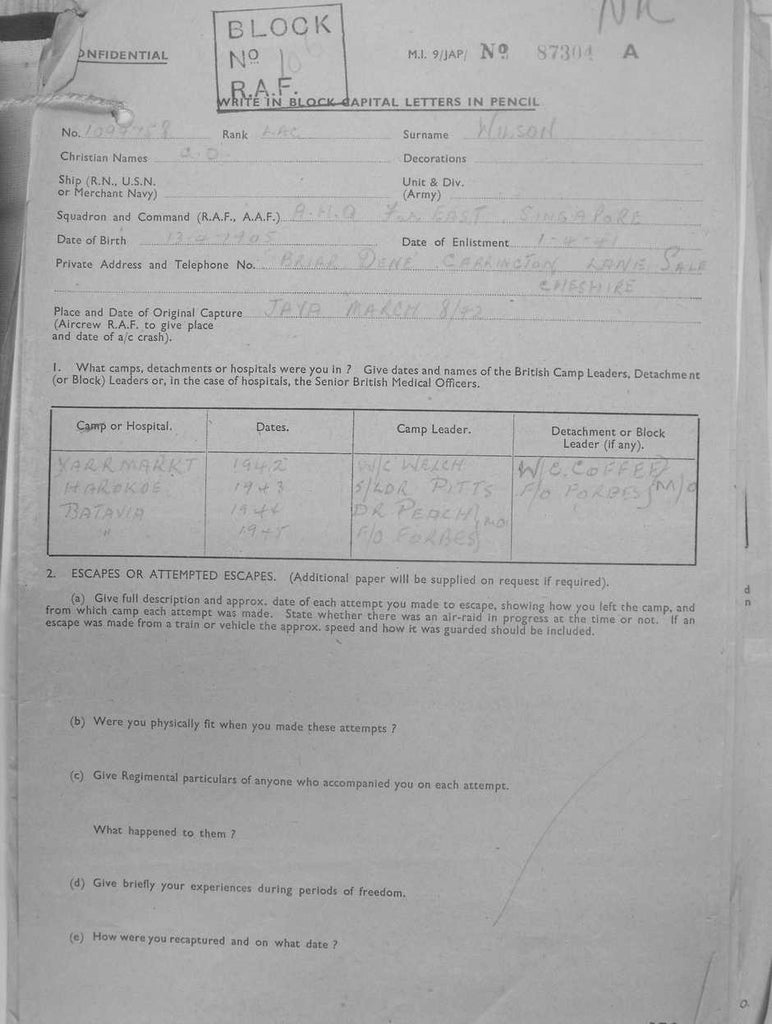 NR
BLOCK
No 10
R.A.F.
ONFIDENTIAL
M.I. 9/JAP/ No 87304 A
WRITE IN BLOCK CAPITAL LETTERS IN PENCIL
No. 1099758 Rank LAC Surname WILSON
Christian Names Decorations
Ship (R.N., U.S.N. or Merchant Navy) Unit & Div. (Army)
Squadron and Command (R.A.F., A.A.F.) A.H.Q FAR EAST SINGAPORE
Date of Birth 13-4-1905 Date of Enlistment 1-4-41
Private Address and Telephone No. BRIAR DENE CARRINGTON LANE SALE
CHESHIRE
Place and Date of Original Capture JAVA MARCH 8/42
(Aircrew R.A.F. to give place
and date of a/c crash).
1. What camps, detachments or hospitals were you in ? Give dates and names of the British Camp Leaders, Detachment
(or Block) Leaders or, in the case of hospitals, the Senior British Medical Officers.
Camp or Hospital. Dates. Camp Leader. Detachment or Block
Leader (if any).
YARRMARKT 1942 W/C WELCH W/C. COFFEE
HAROKOE 1943 S/LDR PITTS F/O FORBES M/O
BATAVIA 1944 DR PEACH MO
" 1945 F/O FORBES
2. ESCAPES OR ATTEMPTED ESCAPES. (Additional paper will be supplied on request if required).
(a) Give full description and approx. date of each attempt you made to escape, showing how you left the camp, and
from which camp each attempt was made. State whether there was an air-raid in progress at the time or not. If an
escape was made from a train or vehicle the approx. speed and how it was guarded should be included.
(b) Were you physically fit when you made these attempts ?
(c) Give Regimental particulars of anyone who accompanied you on each attempt.
What happened to them ?
(d) Give briefly your experiences during periods of freedom.
(e) How were you recaptured and on what date ?